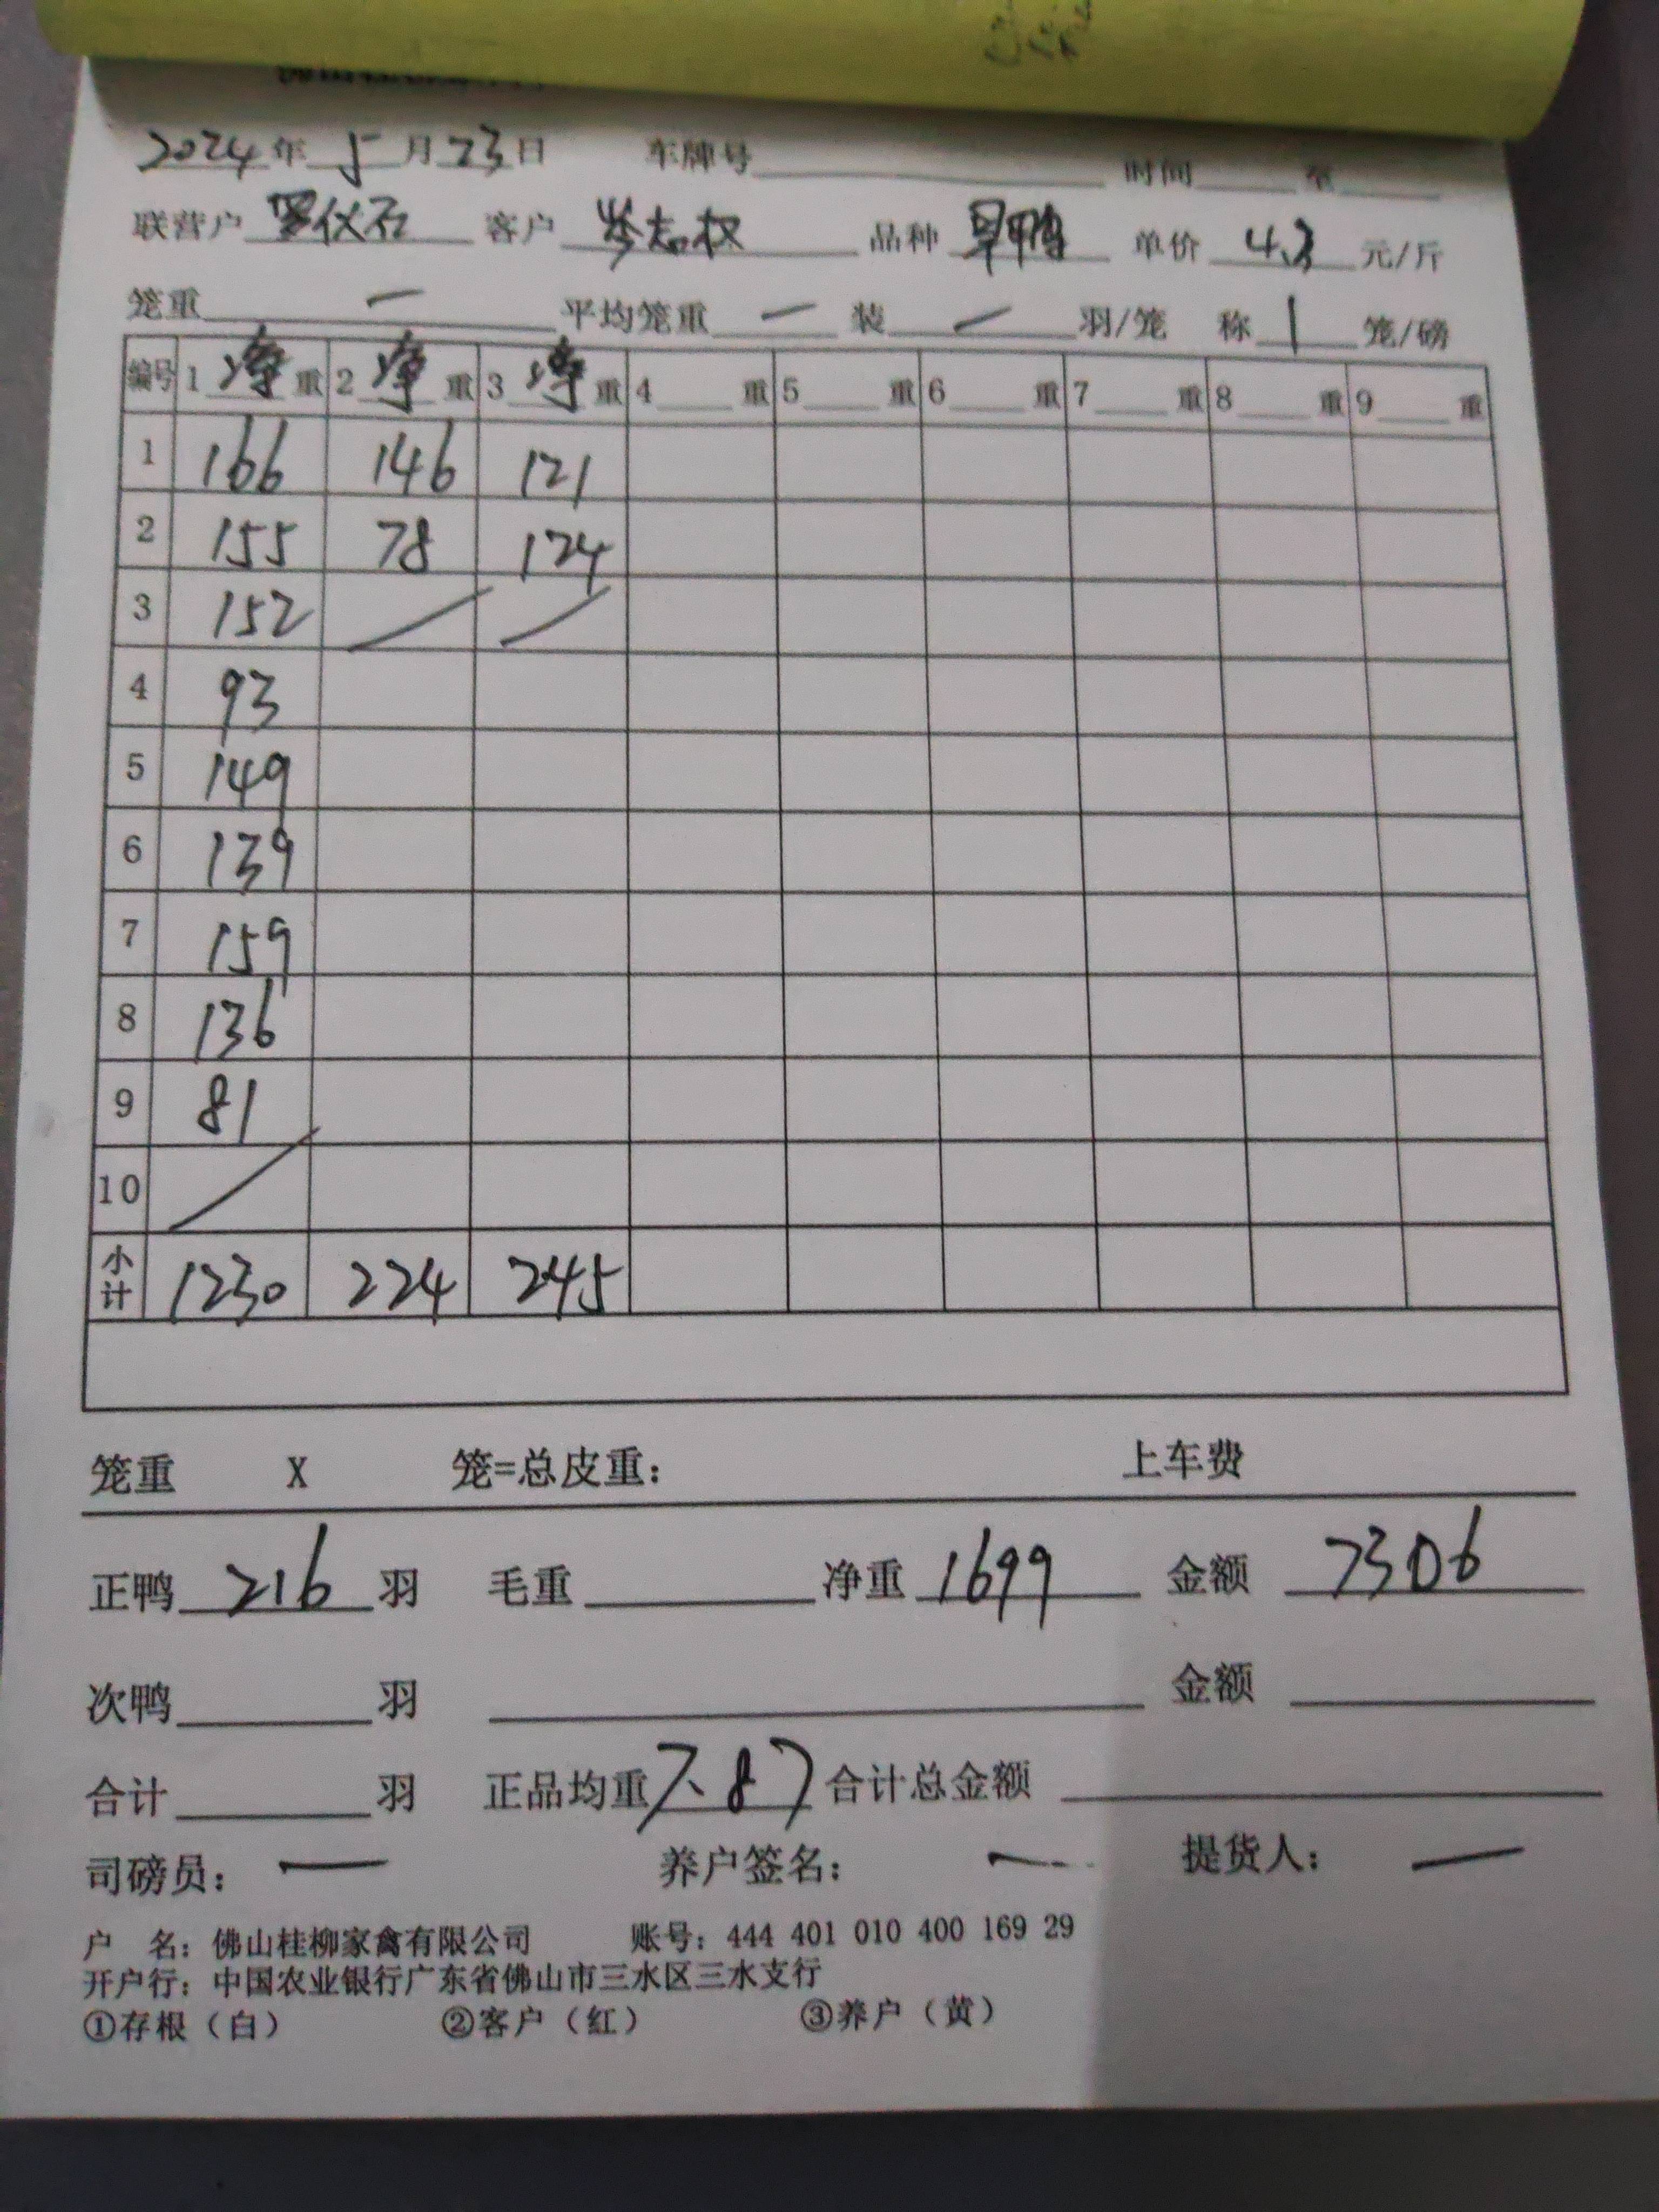 2024年 5月23日 车牌号 时间 至
联营户 罗仪石 客户 岑志权 品种 旱鸭 单价 4.3 元/斤
笼重 一 平均笼重 一 装 一 羽/笼 称 1 笼/磅
编号 1 净 重 2 净 重 3 净 重 4 重 5 重 6 重 7 重 8 重 9 重
1 166 146 121
2 155 78 124
3 152
4 93
5 149
6 139
7 159
8 136
9 81
10
小计 1230 224 245
笼重 X 笼=总皮重: 上车费
正鸭 216 羽 毛重 净重 1699 金额 7306
次鸭 羽 金额
合计 羽 正品均重 7.87 合计总金额
司磅员: 一 养户签名: 一 提货人: 一
户 名: 佛山桂柳家禽有限公司 账号: 444 401 010 400 169 29
开户行: 中国农业银行广东省佛山市三水区三水支行
①存根（白） ②客户（红） ③养户（黄）